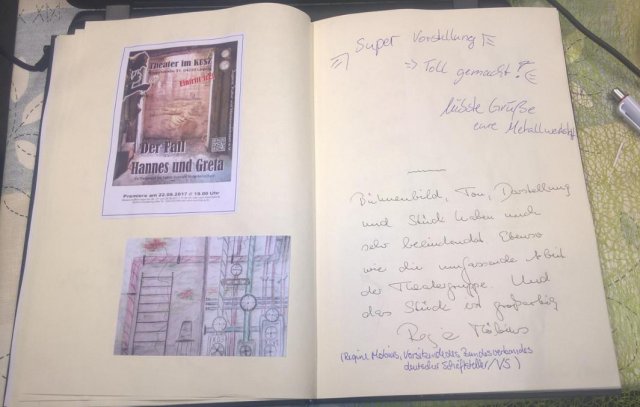 Theater im KuSZ
Eintritt frei
Der Fall
Hannes und Greta
Premiere am 22.09.2017 @ 19.00 Uhr
Super Vorstellung
=> Toll gemacht!
liebste Grüße
eure Metallwerkstatt
Bühnenbild, Ton, Darstellung
und Stück haben mich
sehr beeindruckt. Ebenso
wie die umfassende Arbeit
der Theatergruppe. Und
das Stück ist großartig
Regine Möbius
(Regine Möbius, Vorsitzende des Bundesverbandes
deutscher Schriftsteller/VS)